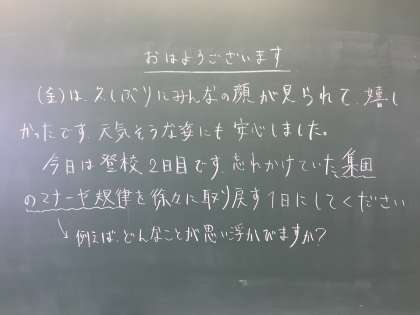 おはようございます
(金)は、久しぶりにみんなの顔が見られて、嬉し
かったです。元気そうな姿にも安心しました。
今日は登校2日目です。忘れかけていた集団
のマナーや規律を徐々に取り戻す1日にしてください
↳例えば、どんなことが思い浮かびますか?